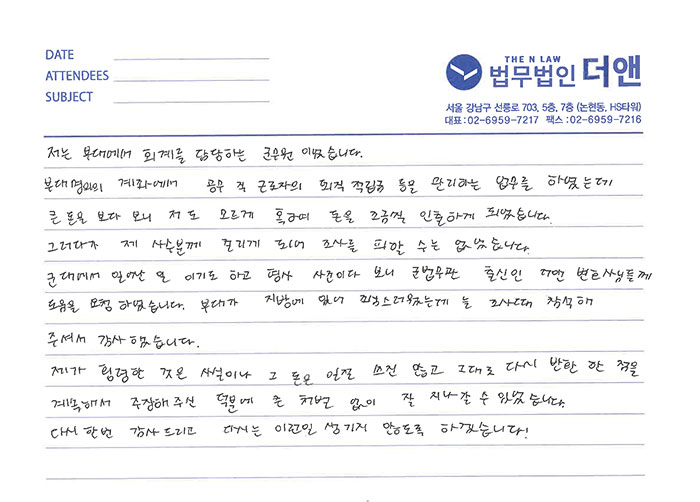 DATE
ATTENDEES
SUBJECT
THE N LAW
법무법인 더앤
서울 강남구 선릉로 703, 5층, 7층 (논현동, HS타워)
대표 : 02-6959-7217 팩스 : 02-6959-7216
저는 부대에서 회계를 담당하는 군무원 이었습니다.
부대명의의 계좌에서 공무직 근로자의 퇴직 적립금 등을 관리하는 업무를 하였는데
큰 돈을 보다 보니 저도 모르게 혹하여 돈을 조금씩 인출하게 되었습니다.
그러다가 제 사수분께 걸리게 되어 조사를 피할 수는 없었습니다.
군대에서 일어난 일 이기도 하고 형사 사건이다 보니 군법무관 출신인 더앤 변호사님들께
도움을 요청 하였습니다. 부대가 지방에 있어 부담스러웠는데 늘 조사때 참석해
주셔서 감사 했습니다.
제가 횡령한 것은 사실이나 그 돈은 일절 쓰진 않고 그대로 다시 반환 한 점을
계속해서 주장해주신 덕분에 큰 처벌 없이 잘 지나갈 수 있었습니다.
다시 한번 감사드리고 다시는 이런일 생기지 않도록 하겠습니다!